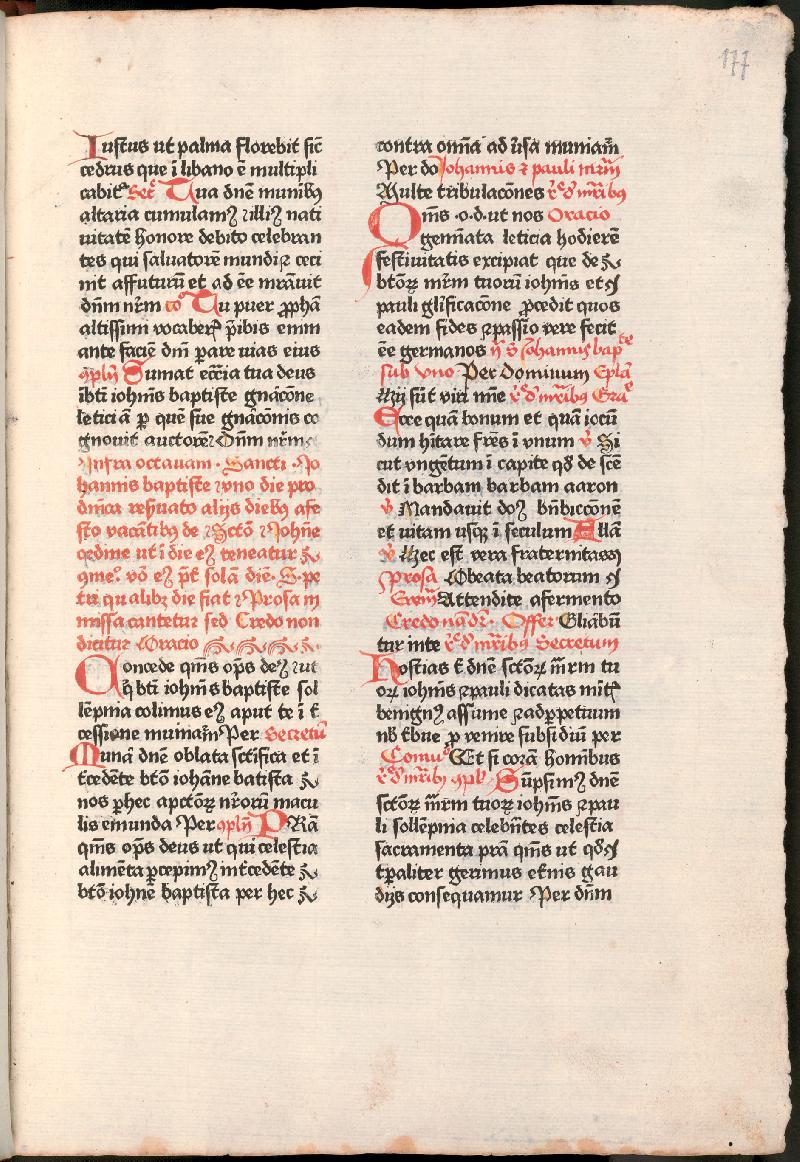 177
Iustus ut palma florebit sic̄
cedrus que ī libano ē multipli
cabit᷑ Sec̄ Tua dn̄e munibꝯ
altaria cumulamꝯ illiꝯ nati
uitatē honore debito celebran
tes qui saluatorē mundi ⁊ ceci
nit affuturū et ad ēe mr̄auit
dn̄m nr̄m co᷑ Tu puer ꝓphā
altissimi vocaber᷑ p̄ibis enim
ante faciē dn̄i ꝑare uias eius
ꝯpln̄ Sumat ecc̄ia tua deus
ib̄ti ioh̄nis baptiste gn̄acōne
leticiā ꝑ quē sue gn̄acōnis co
gnouit auctorē Dn̄m nr̄m
Infra octauam Sancti Jo
hannis baptiste vno die pro
dn̄ica reẜuato alijs diebꝯ a fe
sto vacātibꝯ de Sctō Joh̄ne
ordine ut ī die eꝯ teneatur
solā diē S pe
tri qualibꝫ die fiat ⁊ Prosa in
missa cantetur sed Credo non
dicitur Oracio
Concede qm̄s op̄s deꝯ ut
q̄ bt̄i ioh̄nis baptiste sol
lēpnia colimus eꝯ aput te ī t̄
cessione muniam̄ Per Secretū
Munā dn̄e oblata sctīfica et ī
t̄cedēte bt̄o ioh̄ane batista
nos ꝑ hec a pctōꝝ nr̄orū macu
lis emunda Per ꝯpln̄ PRā
qm̄s op̄s deus ut qui celestia
alimēta ꝑcepimꝯ int̄cedēte
bt̄o ioh̄ne baptista per hec
contra om̄ia aduẜa muniam̄
Per do Johannis ⁊ pauli mr̄m
Multe tribulacōnes r̄ d̄ mr̄ibꝯ
Om̄s o d ut nos Oracio
gemīata leticia hodierē
festiuitatis excipiat que de
bt̄oꝝ mr̄m tuorū ioh̄nis et
pauli gl̄ificacōne ꝓcedit quos
eadem fides ⁊ passio vere fecit
ēe germanos Johannis bapte
sub vno Per Dominum Epl̄a
Hij sūt viri mīe r̄ d̄ mr̄ibꝯ Gra᷑
Ecce quā bonum et quā iocū
dum hītare fr̄es ī vnum v̄ Si
cut vngētum ī capite qd̄ descē
dit ī barbam barbam aaron
v̄ Mandauit doꝯ bn̄diccōnē
et uitam usqꝫ ī seculum Allā
v̄ Hec est vera fraternitas
Prosa O beata beatorum
Ewm̄ Attendite a fermento
Credo nō dr̄ Offer Gliabū
tur in te r̄ d̄ mr̄ibꝯ Secretum
Hostias t̄ dn̄e sctōꝝ mr̄m tu
oꝝ ioh̄nis ⁊ pauli dicatas mit᷑
benignꝯ assume ⁊ ad ꝑpetuum
nb̄ t̄bue ꝓvenire subsidiū per
Comu᷑ Et si corā hominibus
r̄ d̄ mr̄ibꝯ ꝯpl̄ Sūpsimꝯ dn̄e
sctōꝝ mr̄m tuoꝝ ioh̄nis ⁊ pau
li sollēpnia celebn̄tes celestia
sacramenta prā qm̄s ut qd̄
t̄paliter gerimus et̄nis gau
dijs consequamur Per dn̄m